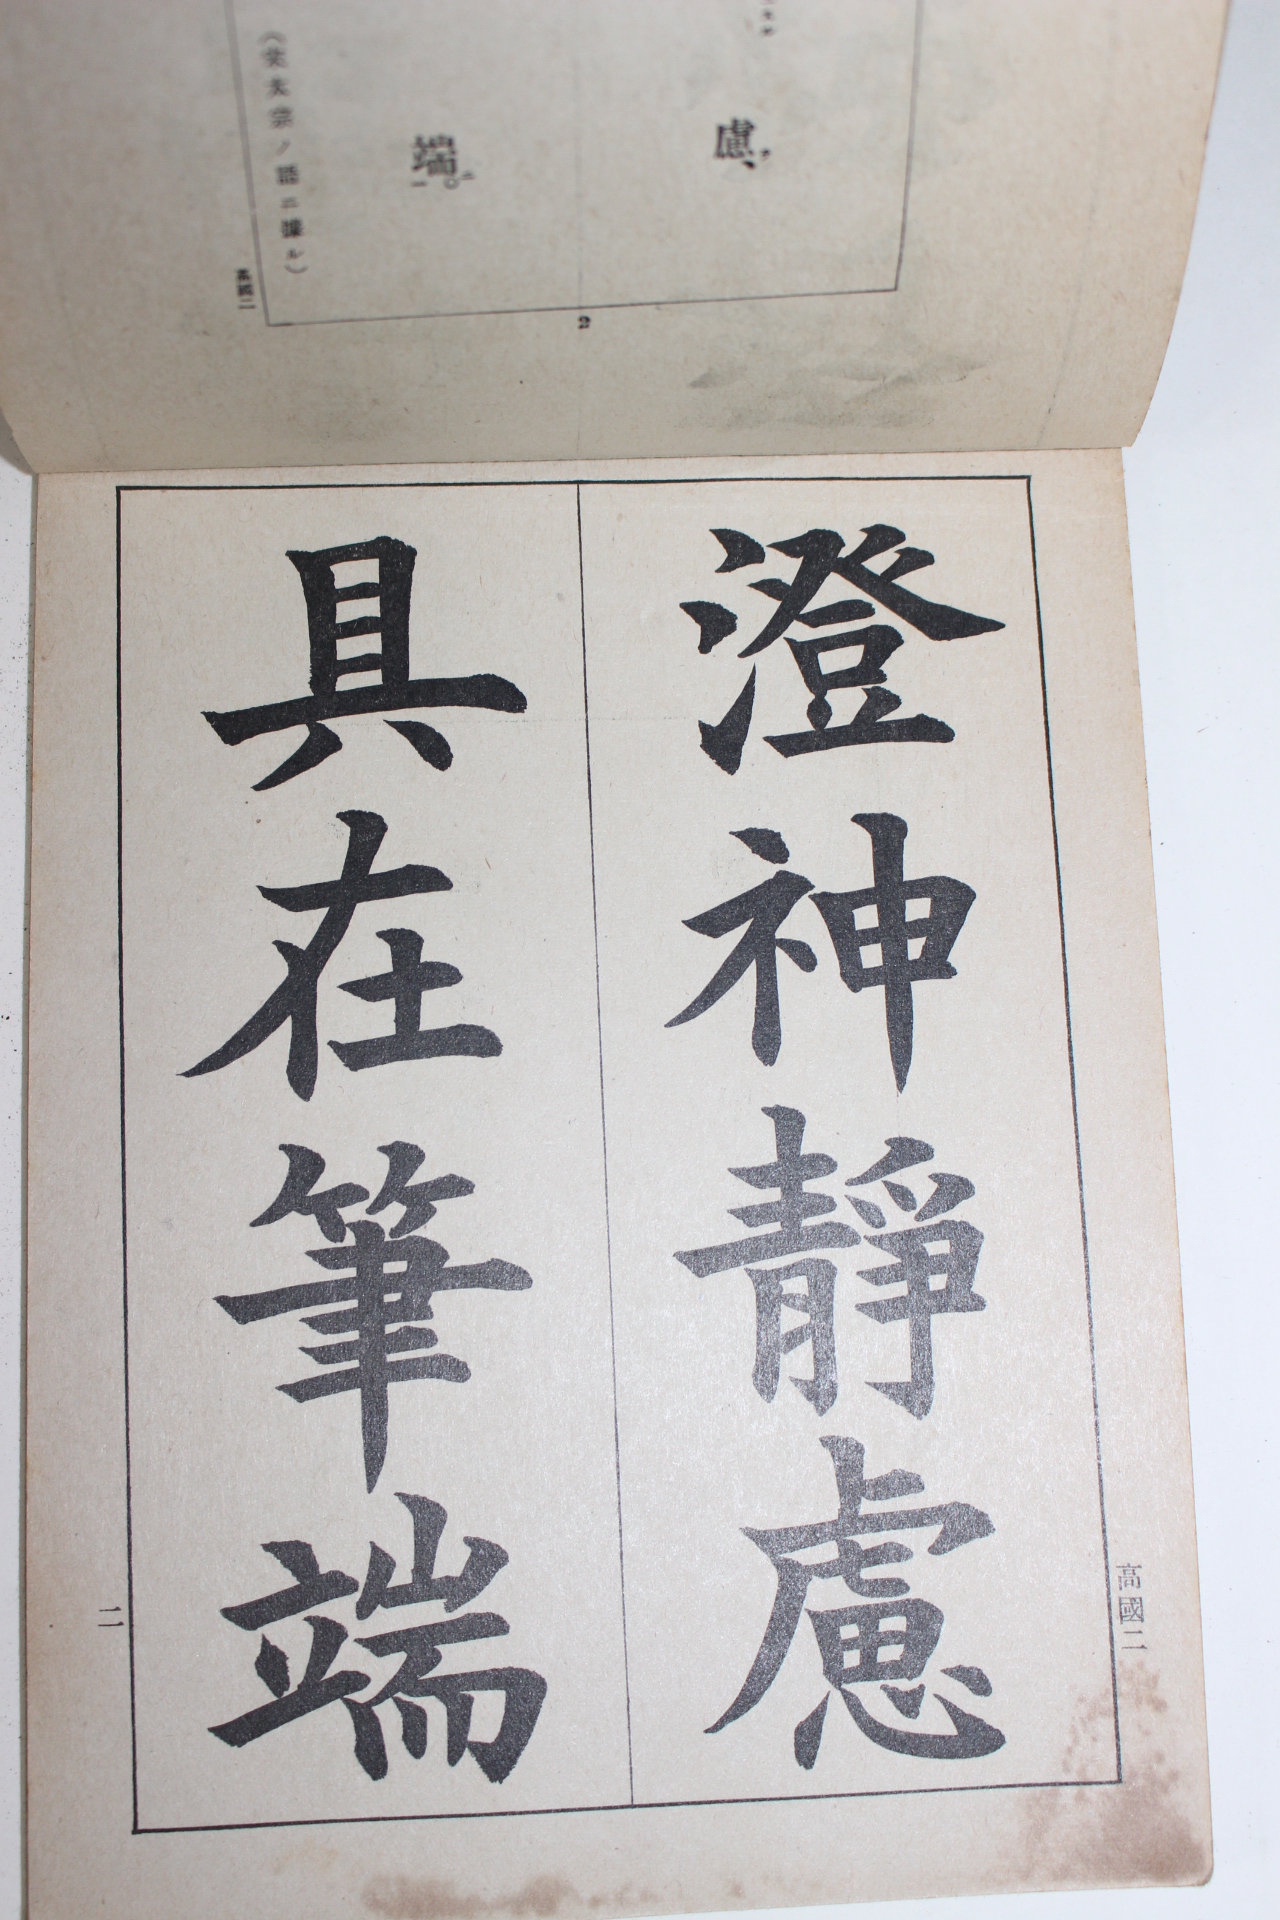 慮、
端。
(宋太宗ノ語ニ據ル)
高國二
2
澄神靜慮
具在筆端
高國二
二